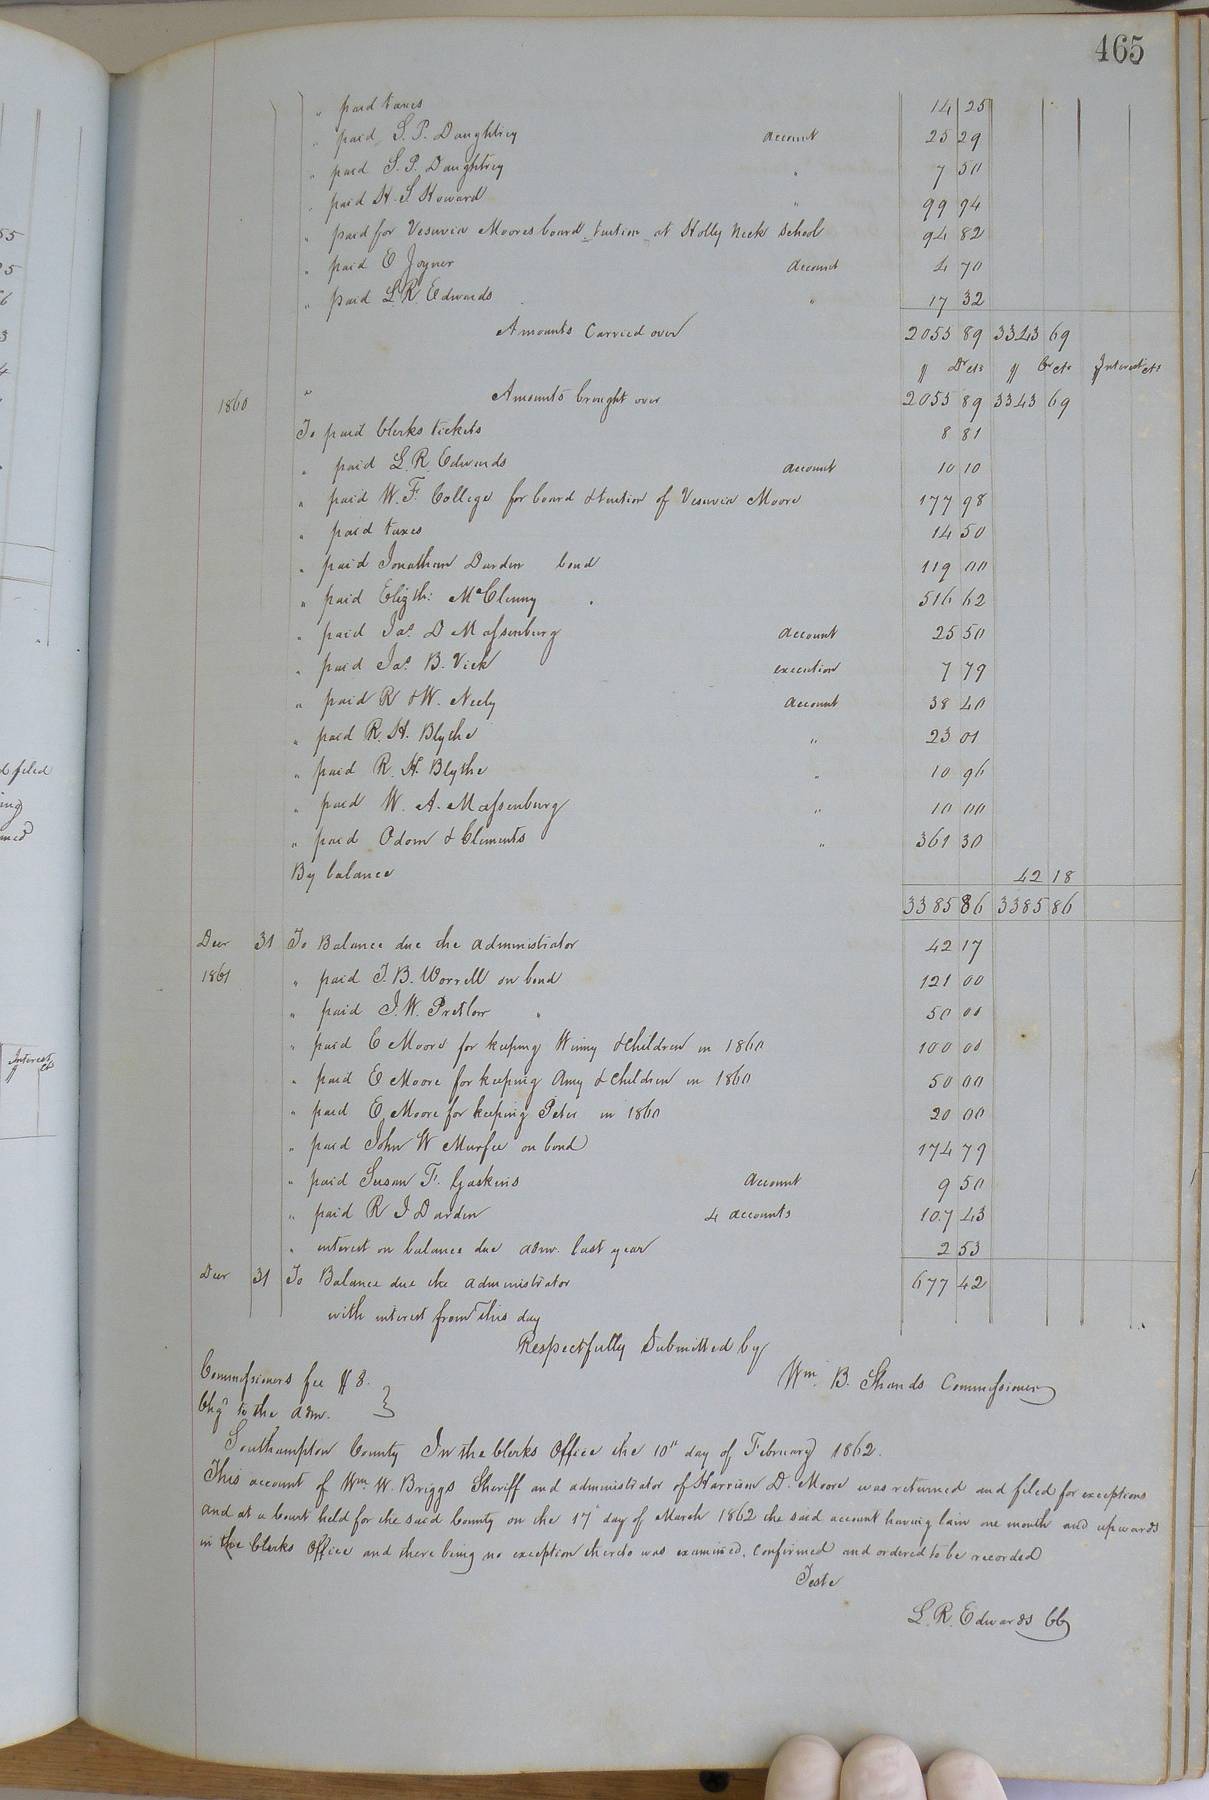 465
" paid taxes 14 25
" paid S. P. Daughtrey account 25 29
" paid S. P. Daughtrey " 7 50
" paid H. S Howard " 99 94
" paid for Vesuvia Moores board tuition at Holly Neck School 94 82
" paid E Joyner account 4 70
" paid L. R Edwards " 17 32
Amounts Carried over 2053 89 3343 69
$ Dr cts $ Cr cts $ Interest cts
1860 " Amounts brought over 2053 89 3343 69
To paid Clerks tickets 8 81
" paid L. R. Edwards account 10 10
" paid W. F. College for board & tuition of Vesuvia Moore 177 98
" paid taxes 14 50
" paid Jonathan Darden bond 119 00
" paid Elizth: McClenny " 516 62
" paid Jas. D Massenburg account 25 50
" paid Jas. B. Vick execution 7 79
" paid R & W. Neely account 38 40
" paid R. H. Blythe " 23 01
" paid R. H. Blythe " 10 96
" paid W. A. Massenburg " 10 00
" paid Odom & Clements " 361 30
By balance 42 18
3385 86 3385 86
Decr 31 To Balance due the administrator 42 17
1861 " paid J. B. Worrell on bond 121 00
" paid J. W. Pretlow " 50 00
" paid E Moore for keeping Winny & children in 1860 100 00
" paid E Moore for keeping Amy & children in 1860 50 00
" paid E Moore for keeping Peter in 1860 20 00
" paid John W Murfee on bond 174 79
" paid Susan F. Gaskins account 9 50
" paid R J Darden 4 accounts 107 43
" interest on balance due adm. last year 2 53
Decr 31 To Balance due the administrator 677 42
with interest from this day
Respectfully Submitted by
Commissioners fee $8. Wm. B. Shands Commissioner
Chgd to the adm.
Southampton County In the Clerks Office the 10" day of February 1862.
This account of Wm. W. Briggs Sheriff and administrator of Harrison D. Moore was returned and filed for exceptions
and at a Court held for the said County on the 17" day of March 1862 the said account having lain one month and upwards
in the Clerks Office and there being no exception thereto was examined, confirmed and ordered to be recorded
Teste
L. R. Edwards CC